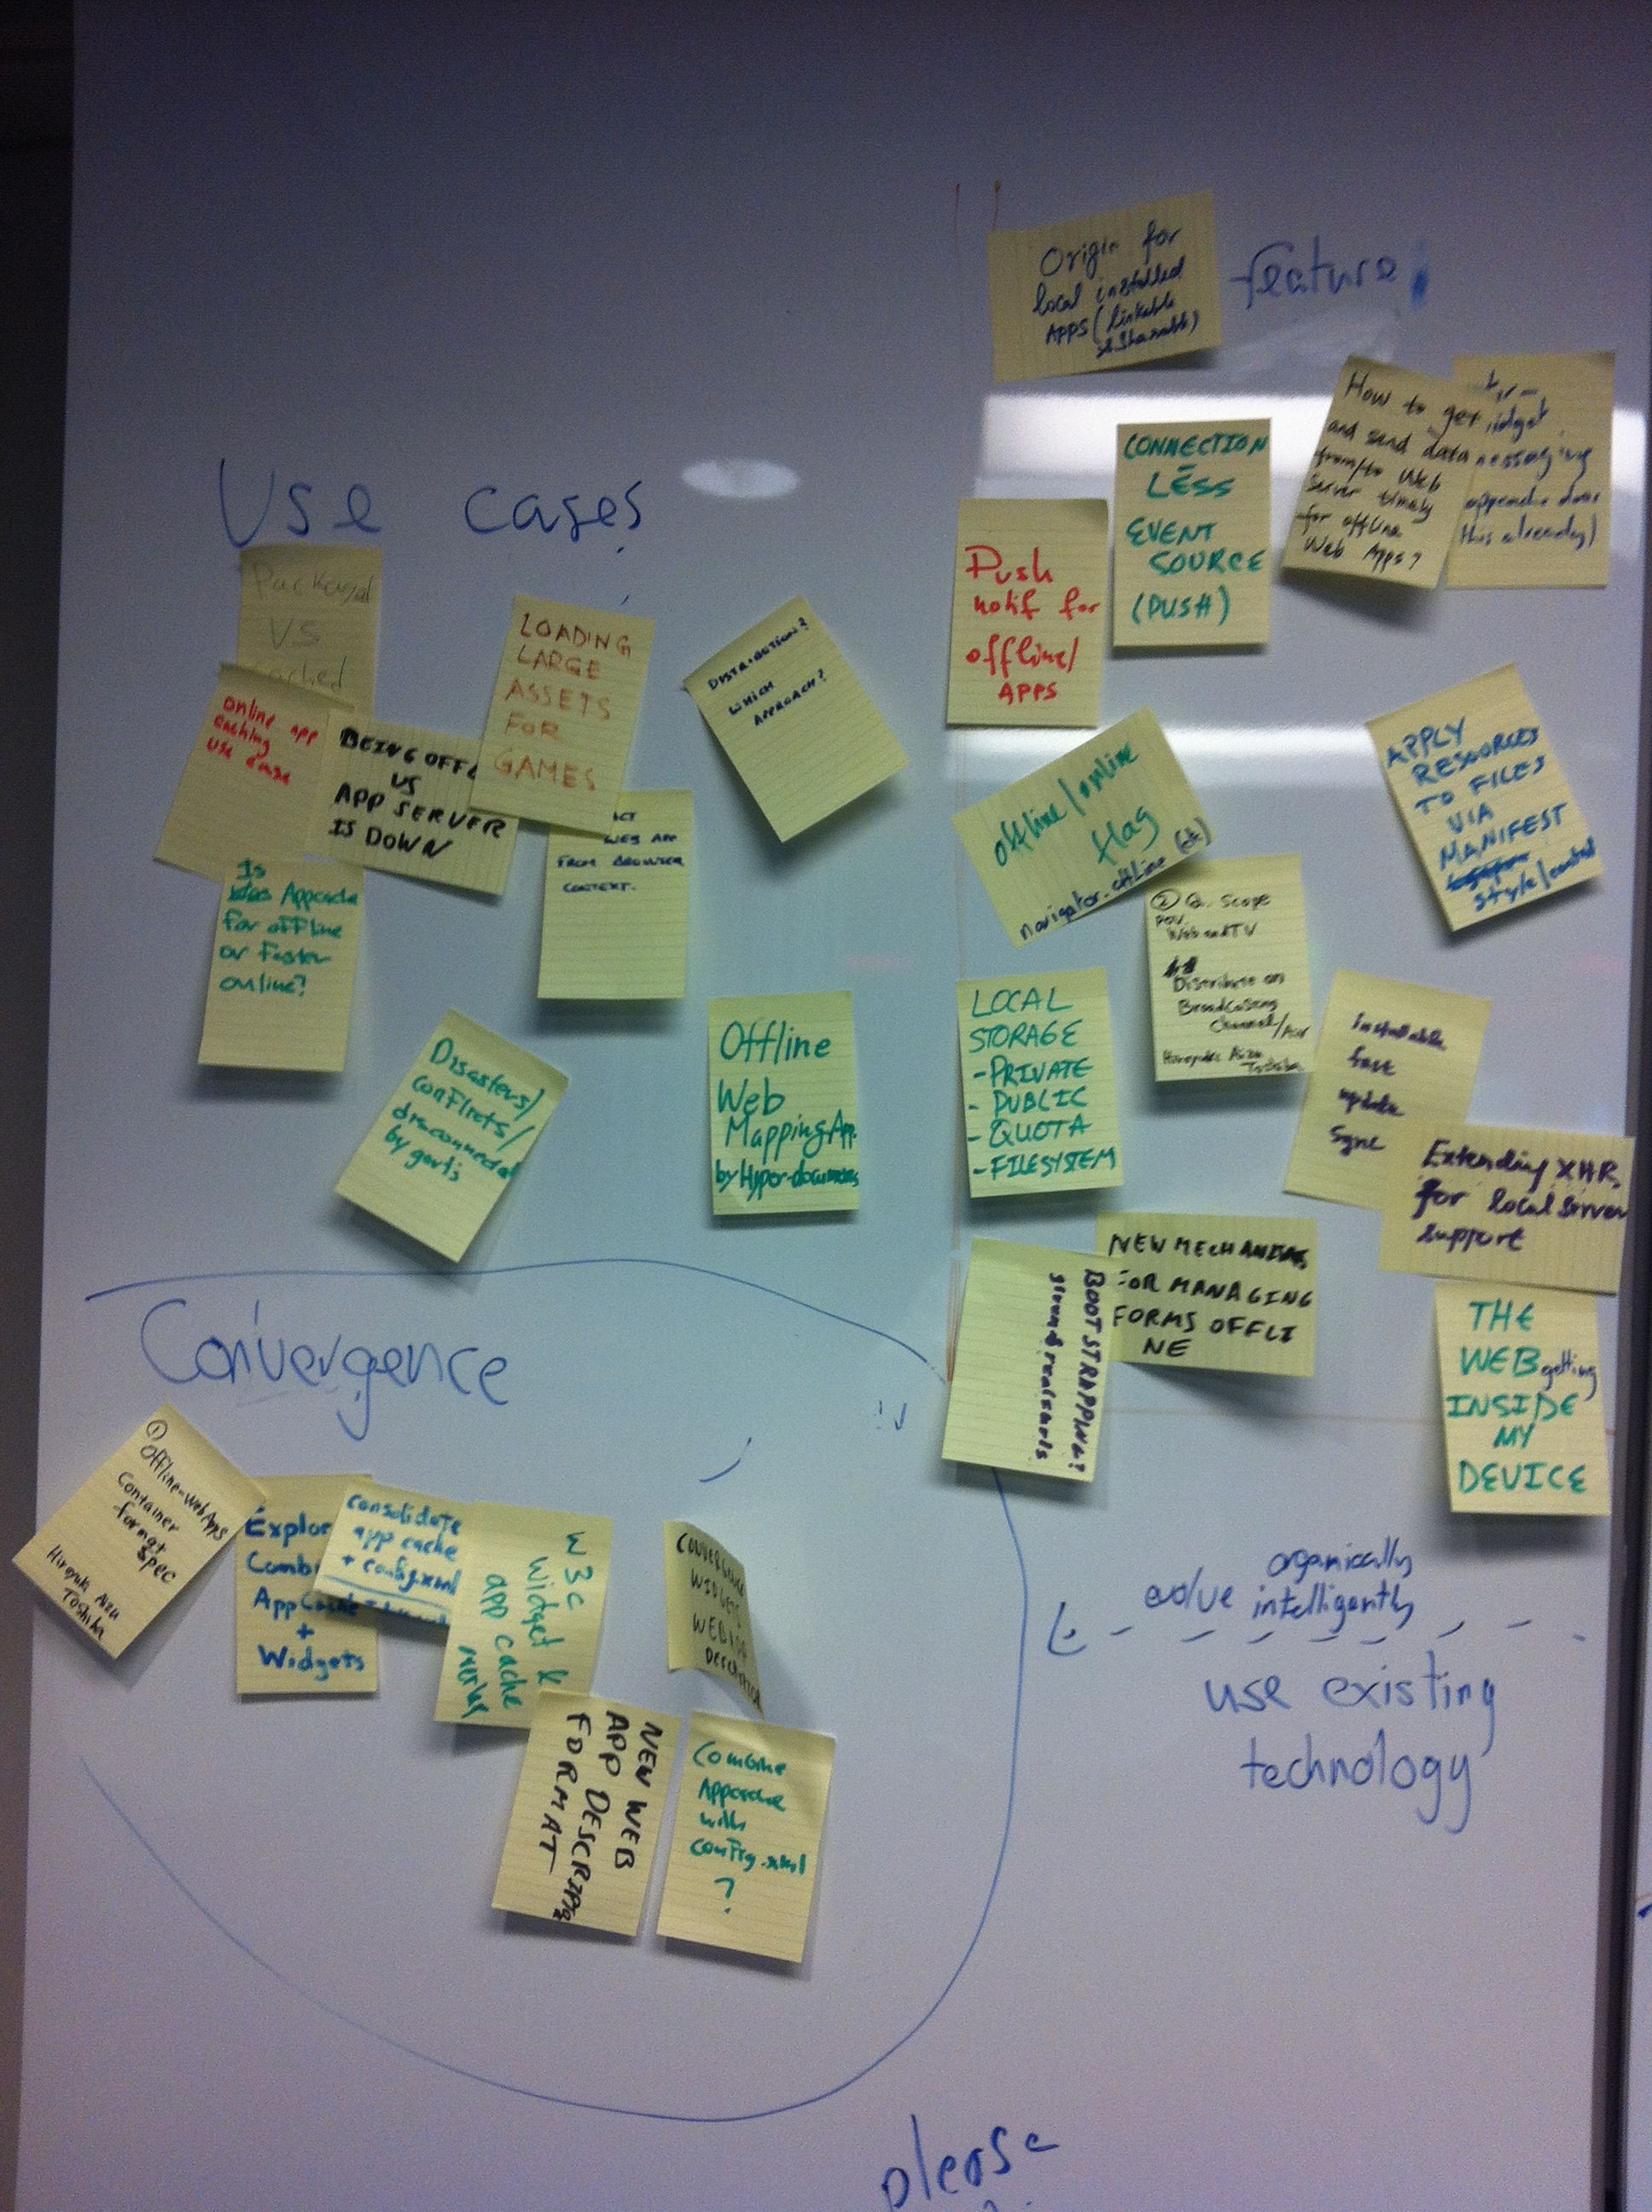 Use cases
Packaged
VS
cached
online app
caching
use case
BEING OFFL
VS
APP SERVER
IS DOWN
LOADING
LARGE
ASSETS
FOR
GAMES
WHICH
APPROACH?
WEB APP
FROM BROWSER
CONTEXT.
Is
Appcache
for offline
or Faster
online?
Disasters/
conflicts/
disconnected
by govts
Offline
Web
Mapping App.
by Hyper-documents
feature
Origin for
local installed
APPS (linkable
& Shareable)
CONNECTION
LESS
EVENT
SOURCE
(PUSH)
Push
notif for
offline/
APPS
How to get
and send data
from/to Web
Server timely
for offline
Web Apps?
messaging
this already)
offline/online
flag
navigator.offline (etc)
APPLY
RESOURCES
TO FILES
VIA
MANIFEST
style/control
② Q. Scope
POV.
Web and TV
Distribute on
Broadcasting
Channel/
Hiroyuki Aizu
Toshiba
LOCAL
STORAGE
- PRIVATE
- PUBLIC
- QUOTA
- FILESYSTEM
installable
fast
update
sync
Extending XHR
for local server
support
NEW MECHANISM
FOR MANAGING
FORMS OFFLI
NE
BOOTSTRAPPING?
THE
WEB getting
INSIDE
MY
DEVICE
Convergence
① Offline-WebApps
Container
format
spec
Hiroyuki Aizu
Toshiba
Explor
Comb
AppCache
+
Widgets
consolidate
app cache
+ config.xml
W3C
Widget &
app cache
CONVERGENCE
WIDGETS
NEW WEB
APP DESCRIPTION
FORMAT
Combine
Appcache
with
config.xml
?
evolve organically
intelligently
use existing
technology
please